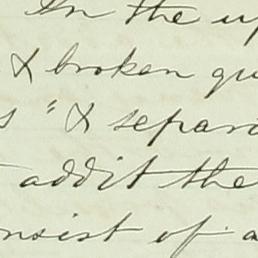 In the up
& broken qu
s " & separa
addit the
nsist of a